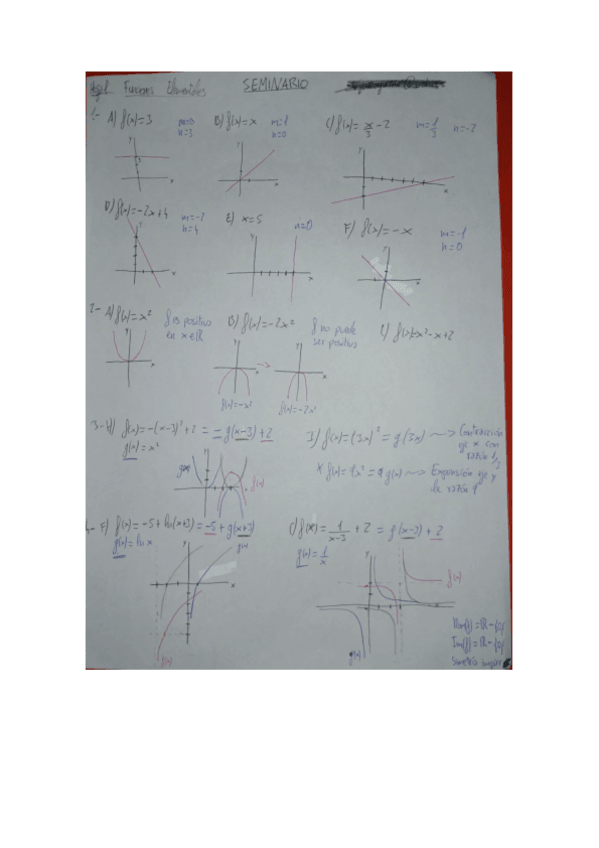 Funciones Elementales SEMINARIO
1.- A) f(x)=3 m=0 n=3 B) f(x)=x m=1 n=0 C) f(x)= x/3 -2 m=1/3 n=-2
D) f(x)=-2x+4 m=-2 n=4 E) x=5 n=0 F) f(x)=-x m=-1 n=0
2- A) f(x)=x² f es positivo en x∈ℝ B) f(x)=-2x² f no puede ser positivo C) f(x)=x²-x+2
f(x)=-x² f(x)=-2x²
3- H) f(x)=-(x-3)²+2 = -g(x-3)+2 I) f(x)=(3x)²=g(3x) ~> Contracción eje x con razón 1/3
g(x)=x² * f(x)=9x²=9g(x) ~> Expansión eje y de razón 9
g(x) f(x)
4- F) f(x)=-5+ln(x+3)=-5+g(x+3) C) f(x)= 1/(x-3) +2 = g(x-3)+2
g(x)=ln x g(x) g(x)= 1/x
f(x)
f(x) g(x)
Simetría impar